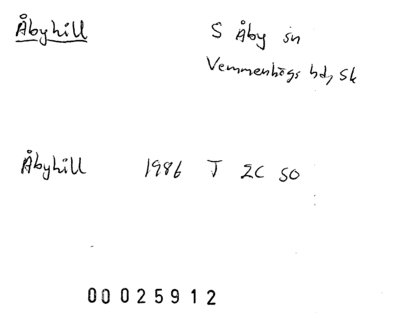 Åbyhill S Åby sn
Vemmenhögs hd, Sk
Åbyhill 1986 T 2C SO
00025912